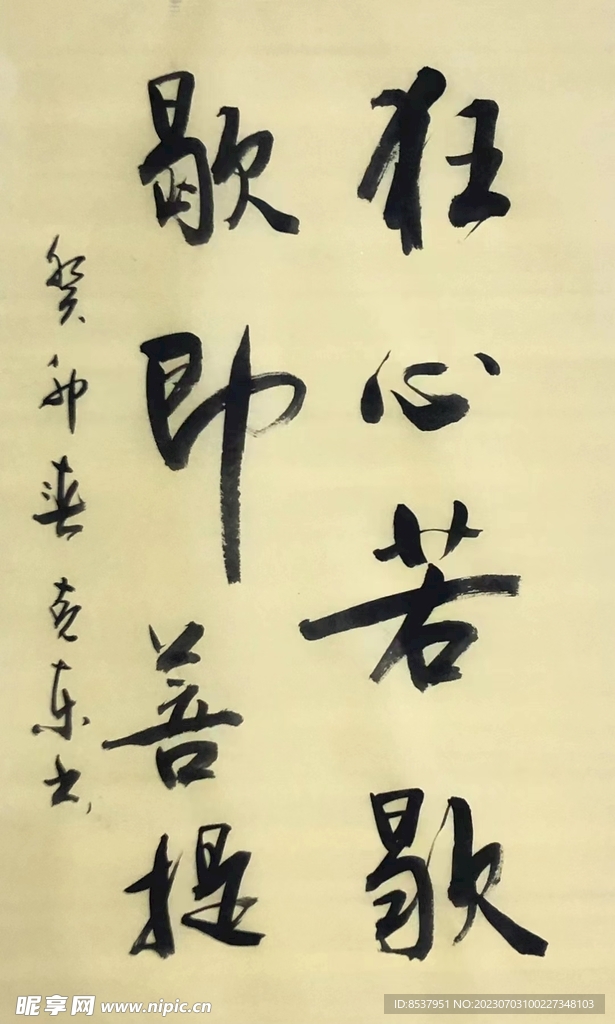 狂心若歇
歇即菩提
癸卯春克东书
昵享网 www.nipic.cn
ID:8537951 NO:20230703100227348103